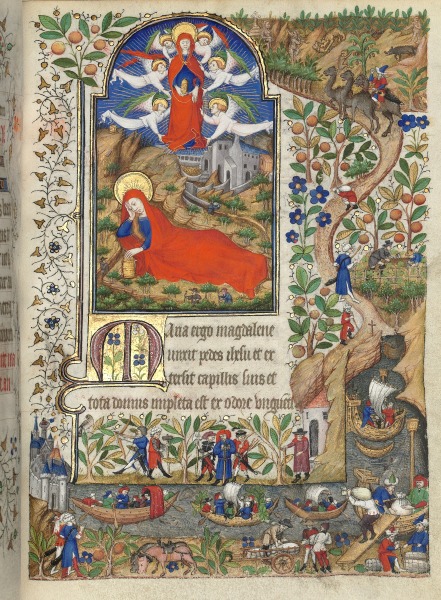 Maria ergo magdalene
unxit pedes ihesu et ex
tersit capillis suis et
tota domus impleta est ex odore unguenti